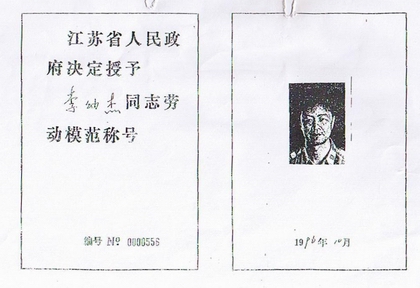 江苏省人民政
府决定授予
李灿杰同志劳
动模范称号
编号 № 0000556
1996年10月